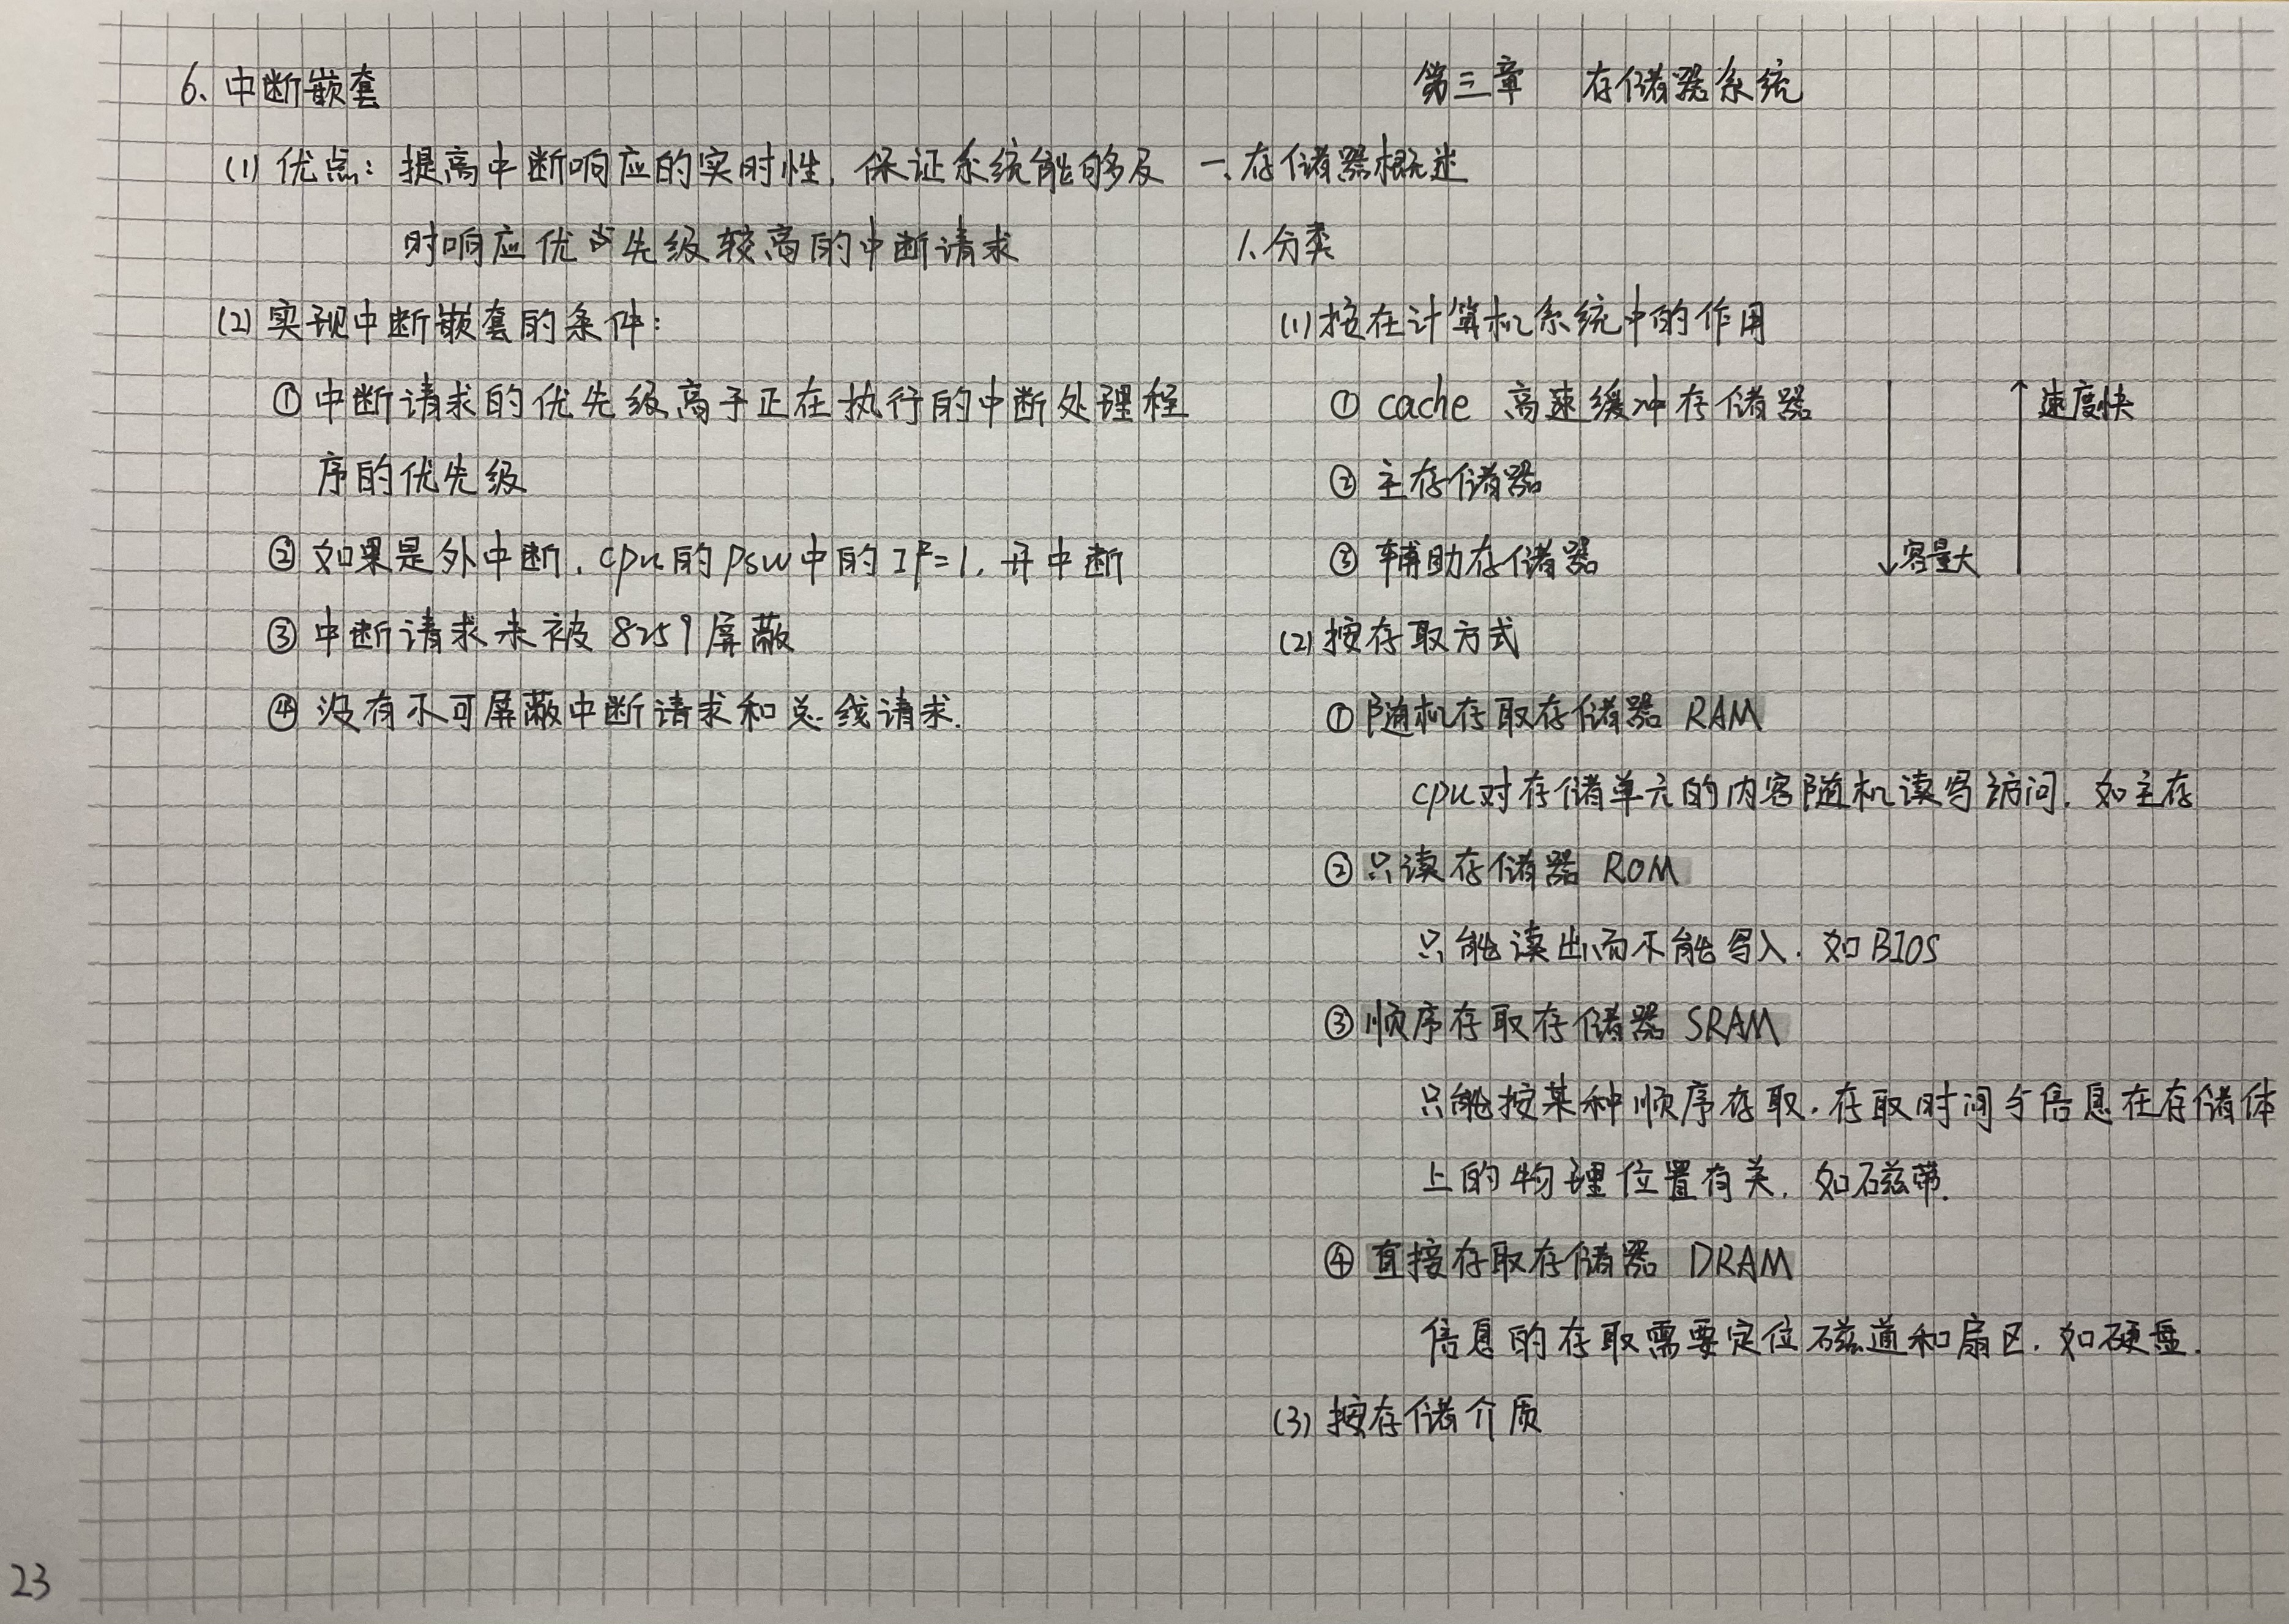 6、中断嵌套
(1) 优点：提高中断响应的实时性，保证系统能够及
时响应优先级较高的中断请求
(2) 实现中断嵌套的条件：
① 中断请求的优先级高于正在执行的中断处理程
序的优先级
② 如果是外中断，cpu的psw中的IF=1，开中断
③ 中断请求未被8259屏蔽
④ 没有不可屏蔽中断请求和总线请求.
23
第三章 存储器系统
一、存储器概述
1、分类
(1) 按在计算机系统中的作用
① cache 高速缓冲存储器
② 主存储器
③ 辅助存储器
容量大
速度快
(2) 按存取方式
① 随机存取存储器 RAM
cpu对存储单元的内容随机读写访问，如主存
② 只读存储器 ROM
只能读出而不能写入，如BIOS
③ 顺序存取存储器 SRAM
只能按某种顺序存取，存取时间与信息在存储体
上的物理位置有关，如磁带.
④ 直接存取存储器 DRAM
信息的存取需要定位磁道和扇区，如硬盘.
(3) 按存储介质